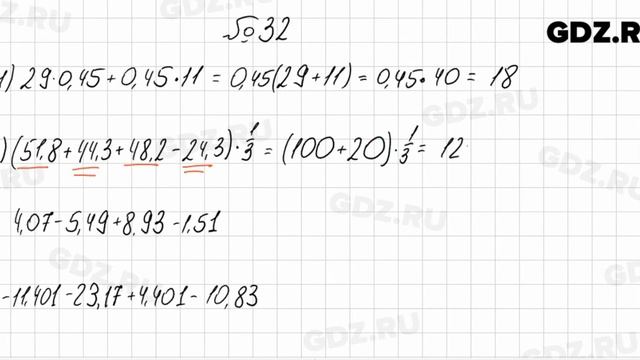 №32
GDZ.RU
1) 29·0,45+0,45·11 = 0,45(29+11) = 0,45·40 = 18
) (51,8+44,3+48,2-24,3)·1/3 = (100+20)·1/3 = 12
4,07-5,49+8,93-1,51
-11,401-23,17+4,401-10,83
GDZ.RU
GDZ.RU
GDZ.RU
GDZ.RU
GDZ.RU